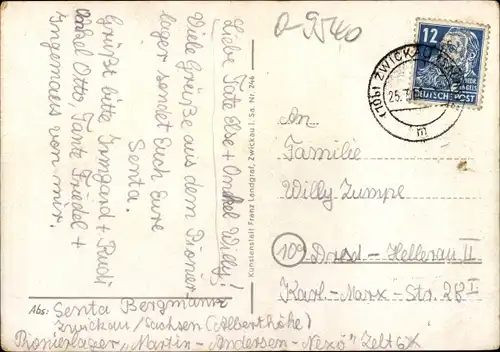 a-9540
Liebe Tate Else + Onkel Willy!
Viele Grüße aus dem Pionier-
lager sendet Euch Eure
Senta.
Grüßt bitte Irmgard + Rudi
Onkel Otto, Tante Friedel +
Ingemaus von mir.
Kunstanstalt Franz Landgraf, Zwickau i. Sa. Nr. 246
12
DEUTSCHE POST
(10b) ZWICKAU
25.7.
m
An
Familie
Willy Zumpe
10a Dresd.-Hellerau II
Karl-Marx-Str. 28 I
Abs: Senta Bergmann
Zwickau/Sachsen (Alberthöhe)
Pionierlager „Martin-Andersen-Nexö" Zelt 6